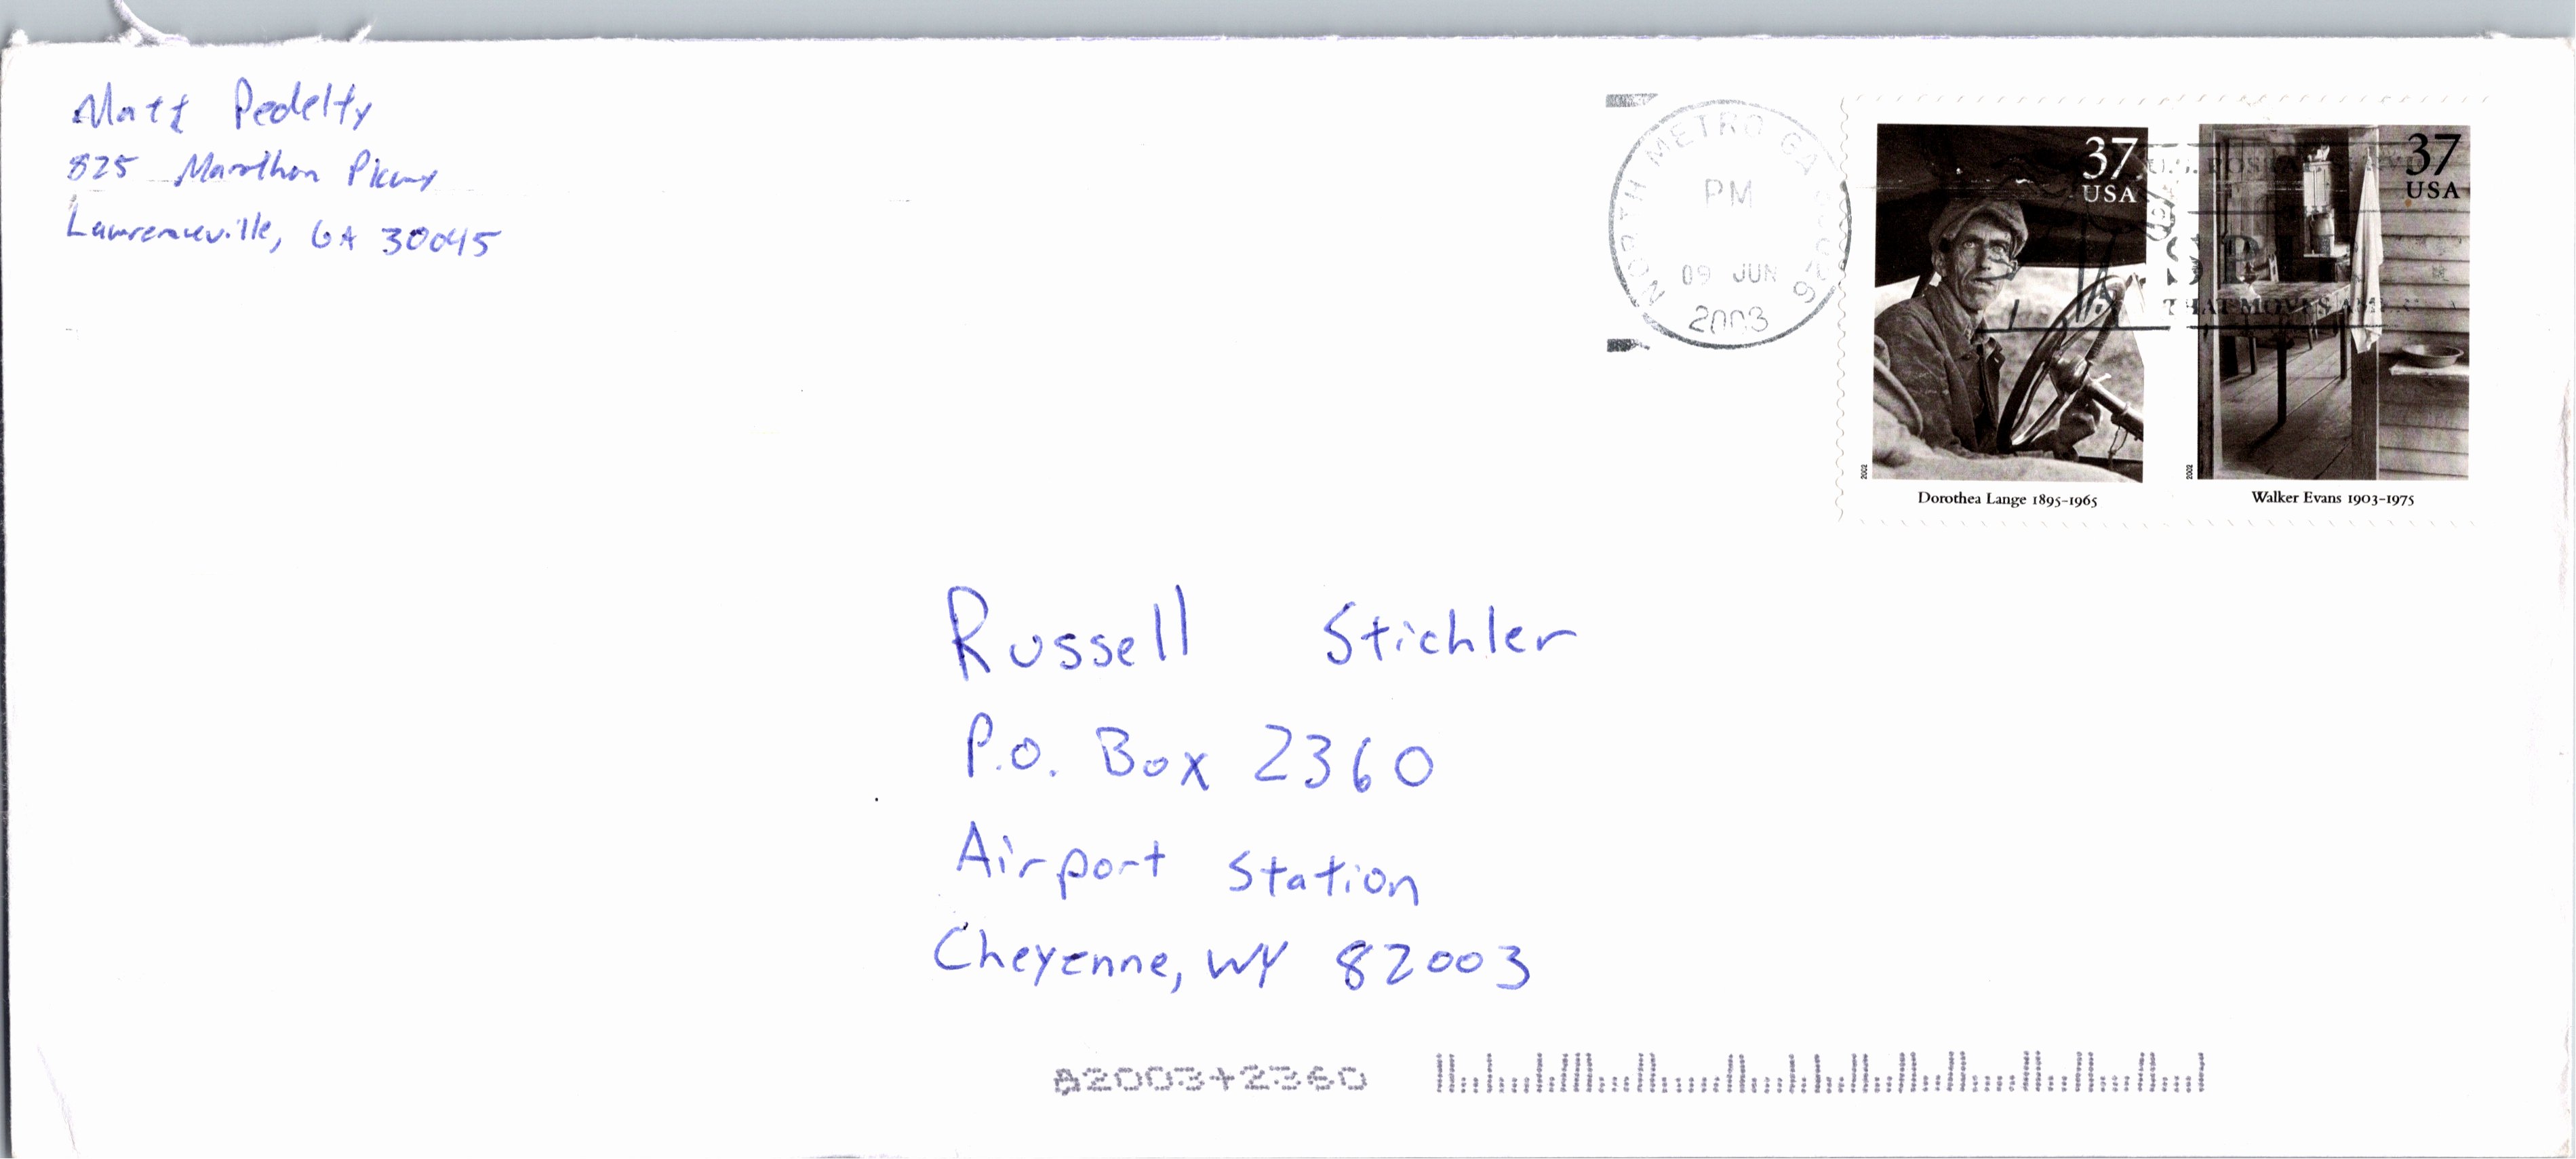 Matt Pedelty
825 Marathon Pkwy
Lawrenceville, GA 30045
NORTH METRO GA
PM
09 JUN
2003
37
USA
2002
Dorothea Lange 1895-1965
U.S.
THAT MOVES
37
USA
2002
Walker Evans 1903-1975
Russell Stichler
P.O. Box 2360
Airport Station
Cheyenne, WY 82003
82003+2360